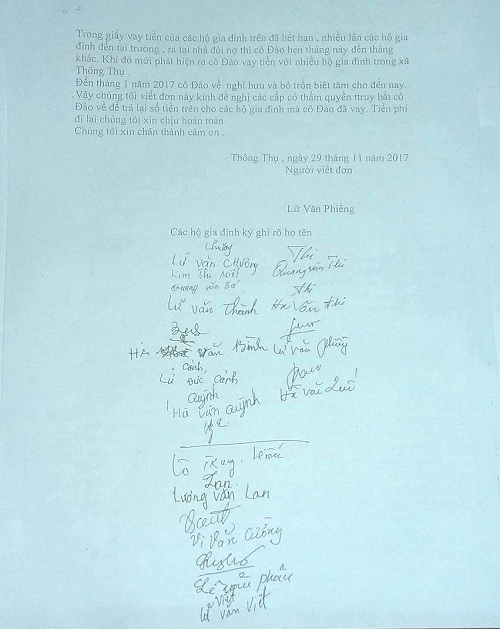 Trong giấy vay tiền của các hộ gia đình trên đã hết hạn , nhiều lần các hộ gia
đình đến tại trường , ra tại nhà đòi nợ thì cô Đào hẹn tháng này đến tháng
khác. Khi đó mới phát hiện ra cô Đào vay tiền với nhiều hộ gia đình trong xã
Thông Thụ .
Đến tháng 1 năm 2017 cô Đào về nghỉ hưu và bỏ trốn biệt tăm cho đến nay.
Vậy chúng tôi viết đơn này kính đề nghị các cấp có thẩm quyền ttruy bắt cô
Đào về để trả lại số tiền trên cho các hộ gia đình mà cô Đào đã vay. Tiền phí
đi lại chúng tôi xin chịu hoàn toàn
Chúng tôi xin chân thành cảm ơn .
Thông Thụ , ngày 29 tháng 11 năm 2017
Người viết đơn
Lữ Văn Phiếng
Các hộ gia đình ký ghi rõ họ tên
Chương Thi
Lữ văn Chương Quang văn Thi
Kim Thị Miết
văn Thi
Lữ văn Thành Hà Văn Thi
Hà Văn Bình Lữ văn Phùng
Cảnh
Lữ Đức Cảnh Hà văn
Quỳnh
Hà văn Quỳnh
Lô Trung
Lan
Lương văn Lan
Vi Văn Cường
Việt
Lữ văn Việt